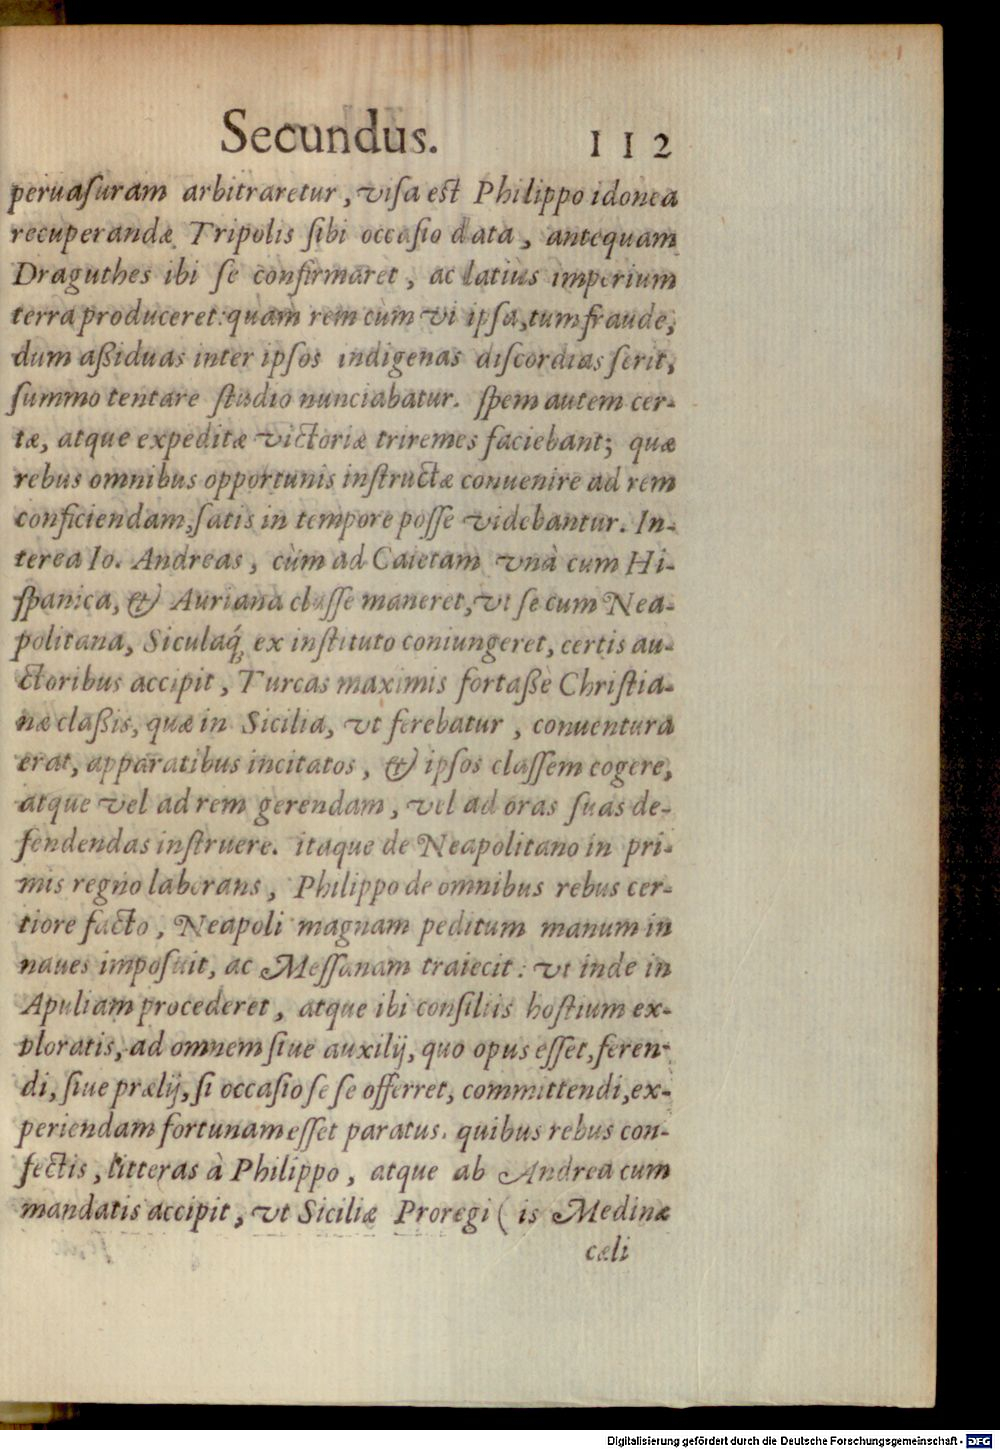 Secundus. 112
peruaſuram arbitraretur, viſa est Philippo idonea
recuperandæ Tripolis ſibi occaſio data, antequam
Draguthes ibi ſe confirmaret, ac latius imperium
terra produceret: quàm rem cùm vi ipſa, tum fraude,
dum aßiduas inter ipſos indigenas diſcordias ſerit,
ſummo tentare ſtudio nunciabatur. ſpem autem cer-
tæ, atque expeditæ victoriæ triremes faciebant; quæ
rebus omnibus opportunis inſtructæ conuenire ad rem
conficiendam, ſatis in tempore poſſe videbantur. In-
terea Io. Andreas, cùm ad Caietam vnà cum Hi-
ſpanica, & Auriana claſſe maneret, vt ſe cum Nea-
politana, Siculaq́; ex inſtituto coniungeret, certis au-
ctoribus accipit, Turcas maximis fortaßè Chriſtia-
næ claßis, quæ in Sicilia, vt ferebatur, conuentura
erat, apparatibus incitatos, & ipſos claſſem cogere,
atque vel ad rem gerendam, vel ad oras ſuas de-
fendendas inſtruere. itaque de Neapolitano in pri-
mis regno laborans, Philippo de omnibus rebus cer-
tiore facto, Neapoli magnam peditum manum in
naues impoſuit, ac Meſſanam traiecit: vt inde in
Apuliam procederet, atque ibi conſiliis hoſtium ex-
ploratis, ad omnem ſiue auxilij, quo opus eſſet, feren-
di, ſiue prælij, ſi occaſio ſe ſe offerret, committendi, ex-
periendam fortunam eſſet paratus. quibus rebus con-
fectis, litteras à Philippo, atque ab Andrea cum
mandatis accipit, vt Siciliæ Proregi (is Medinæ
cæli
Digitalisierung gefördert durch die Deutsche Forschungsgemeinschaft - DFG